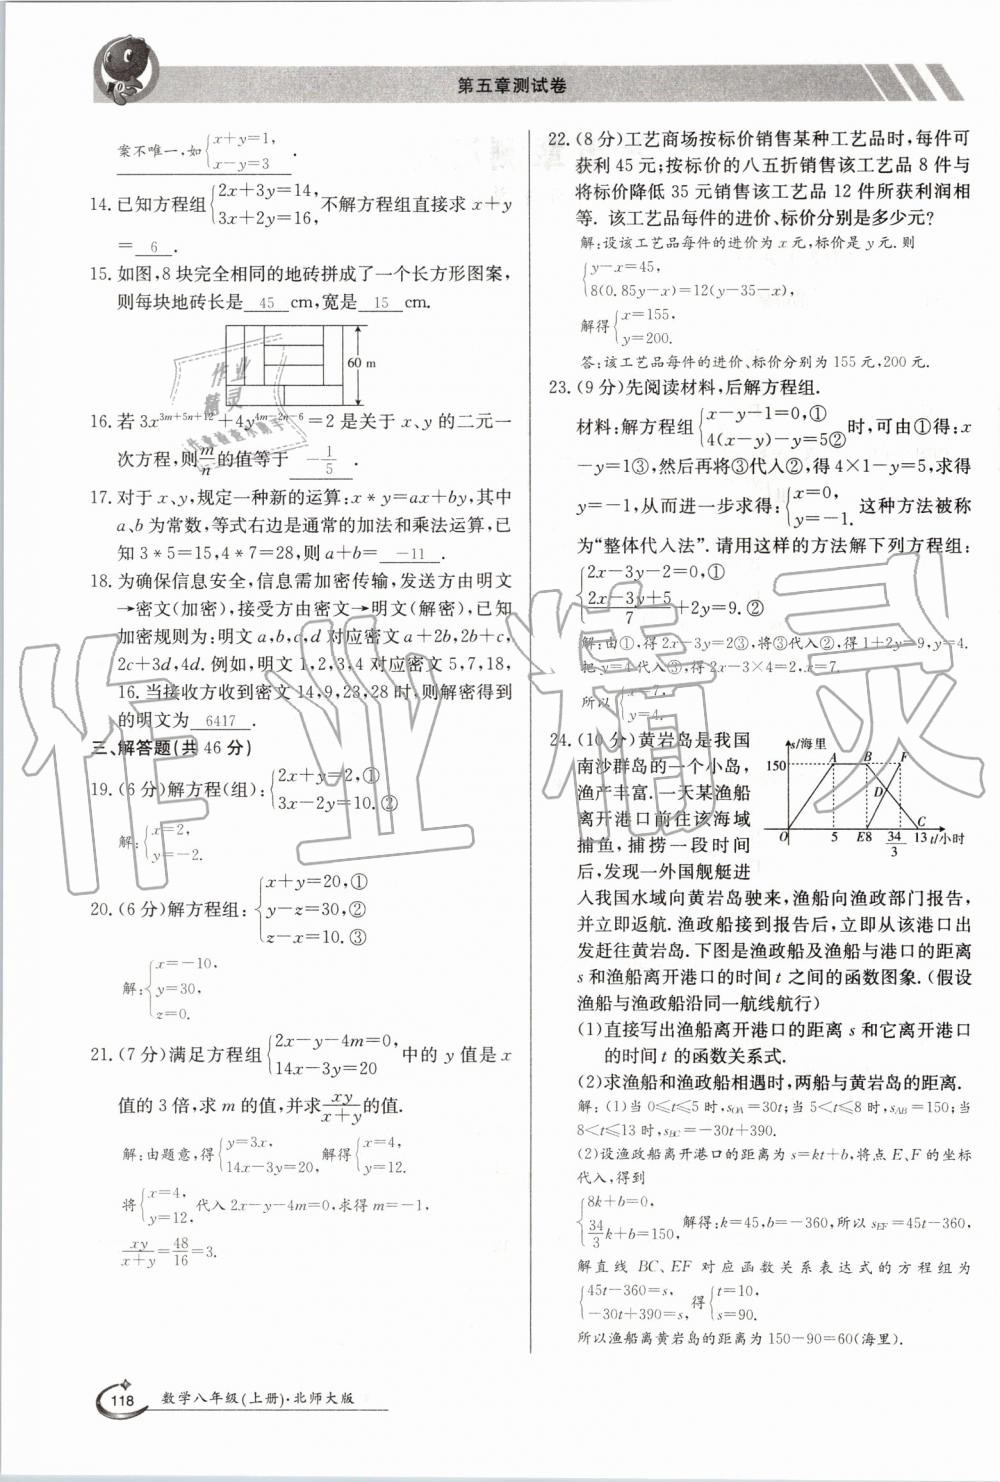 第五章测试卷
案不唯一,如{x+y=1, x-y=3 .
14.已知方程组{2x+3y=14, 3x+2y=16, 不解方程组直接求 x+y
= 6 .
15.如图,8块完全相同的地砖拼成了一个长方形图案,
则每块地砖长是 45 cm,宽是 15 cm.
60 m
16.若 3x^{3m+5n+12}+4y^{4m-2n-6}=2 是关于 x、y 的二元一
次方程,则 m/n 的值等于 -1/5 .
17.对于 x、y,规定一种新的运算:x*y=ax+by,其中
a、b 为常数,等式右边是通常的加法和乘法运算,已
知 3*5=15,4*7=28,则 a+b= -11 .
18.为确保信息安全,信息需加密传输,发送方由明文
→密文(加密),接受方由密文→明文(解密),已知
加密规则为:明文 a,b,c,d 对应密文 a+2b,2b+c,
2c+3d,4d.例如,明文 1,2,3,4 对应密文 5,7,18,
16.当接收方收到密文 14,9,23,28 时,则解密得到
的明文为 6417 .
三、解答题(共 46 分)
19.(6 分)解方程(组):{2x+y=2,① 3x-2y=10.②
解:{x=2, y=-2.
20.(6 分)解方程组:{x+y=20,① y-z=30,② z-x=10.③
解:{x=-10, y=30, z=0.
21.(7 分)满足方程组{2x-y-4m=0, 14x-3y=20 中的 y 值是 x
值的 3 倍,求 m 的值,并求 xy/(x+y) 的值.
解:由题意,得{y=3x, 14x-3y=20, 解得{x=4, y=12.
将{x=4, y=12, 代入 2x-y-4m=0,求得 m=-1.
xy/(x+y)=48/16=3.
22.(8 分)工艺商场按标价销售某种工艺品时,每件可
获利 45 元;按标价的八五折销售该工艺品 8 件与
将标价降低 35 元销售该工艺品 12 件所获利润相
等. 该工艺品每件的进价、标价分别是多少元?
解:设该工艺品每件的进价为 x 元,标价是 y 元. 则
{y-x=45, 8(0.85y-x)=12(y-35-x),
解得{x=155, y=200.
答:该工艺品每件的进价、标价分别为 155 元,200 元.
23.(9 分)先阅读材料,后解方程组.
材料:解方程组{x-y-1=0,① 4(x-y)-y=5② 时,可由①得:x
-y=1③,然后再将③代入②,得 4×1-y=5,求得
y=-1,从而进一步求得:{x=0, y=-1. 这种方法被称
为“整体代入法”. 请用这样的方法解下列方程组:
{2x-3y-2=0,① (2x-3y+5)/7+2y=9.②
解:由①,得 2x-3y=2③,将③代入②,得 1+2y=9,y=4.
把 y=4 代入③,得 2x-3×4=2,x=7.
所以{x=7, y=4.
24.(10 分)黄岩岛是我国
南沙群岛的一个小岛,
渔产丰富. 一天某渔船
离开港口前往该海域
捕鱼, 捕捞一段时间
后,发现一外国舰艇进
s/海里
150
A B F
D
O 5 E8 34/3 C 13 t/小时
入我国水域向黄岩岛驶来,渔船向渔政部门报告,
并立即返航. 渔政船接到报告后,立即从该港口出
发赶往黄岩岛. 下图是渔政船及渔船与港口的距离
s 和渔船离开港口的时间 t 之间的函数图象.(假设
渔船与渔政船沿同一航线航行)
(1)直接写出渔船离开港口的距离 s 和它离开港口
的时间 t 的函数关系式.
(2)求渔船和渔政船相遇时,两船与黄岩岛的距离.
解: (1)当 0≤t≤5 时,s_OA=30t;当 5<t≤8 时,s_AB=150;当
8<t≤13 时,s_BC=-30t+390.
(2)设渔政船离开港口的距离为 s=kt+b,将点 E、F 的坐标
代入,得到
{8k+b=0, 34/3k+b=150, 解得:k=45,b=-360,所以 s_EF=45t-360,
解直线 BC、EF 对应函数关系表达式的方程组为
{45t-360=s, -30t+390=s, 得{t=10, s=90.
所以渔船离黄岩岛的距离为 150-90=60(海里).
118 数学八年级(上册)·北师大版
作业精灵